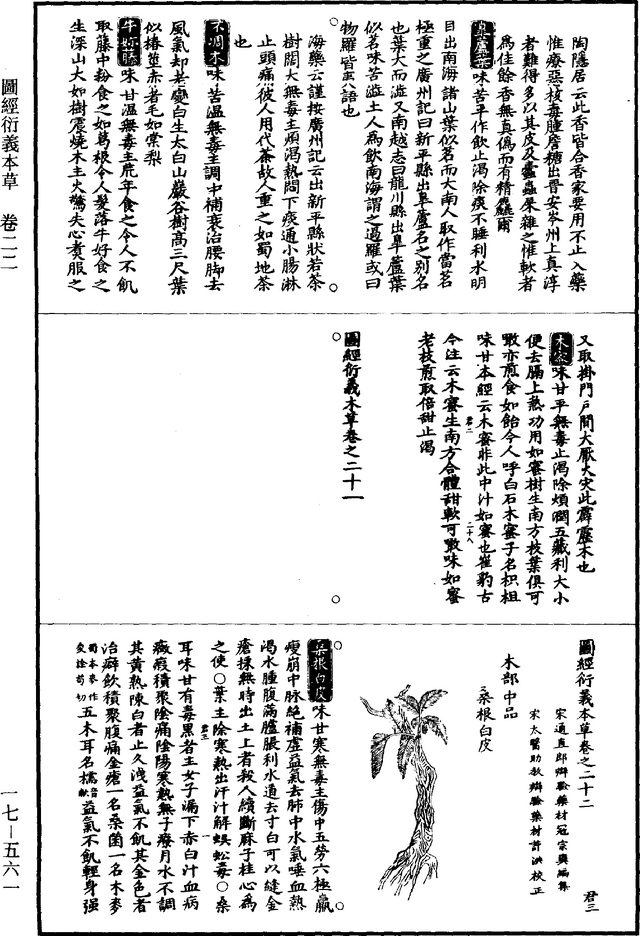 陶隱居云此香皆合香家要用不正入藥
惟療惡核毒腫詹糖出晉安岑州上真淳
者難得多以其皮及蠹蟲屎雜之惟軟者
為佳餘香無真偽而有精麤爾
皐盧葉味苦平作飲止渴除痰不睡利水明
目出南海諸山葉似茗而大南人取作當茗
極重之廣州記曰新平縣出皐蘆名之別名
也葉大而澁又南越志曰龍川縣出皐蘆葉
似茗味苦澁土人為飲南海謂之過羅或曰
物羅皆夷語也
海藥云謹按廣州記云出新平縣狀若茶
樹闊大無毒主煩渴熱悶下痰通小腸淋
止頭痛彼人用代茶故人重之如蜀地茶
也
不凋木味苦溫無毒主調中補衰治腰脚去
風氣却老變白生太白山巖谷樹高三尺葉
似椿莖赤者毛如棠梨
牛妳藤味甘溫無毒主荒年食之令人不飢
取藤中粉食之如葛根令人髮落牛好食之
生深山大如樹震燒木主火驚失心煮服之
又取掛門戶間大厭火灾此霹靂木也
木蜜味甘平無毒止渴除煩潤五藏利大小
便去膈上熱功用如蜜樹生南方枝葉俱可
噉亦煎食如飴今人呼白石木蜜子名枳椇
味甘本經云木蜜非此中汁如蜜也崔豹古
今注云木蜜生南方合體甜軟可噉味如蜜
老枝煎取倍甜止渴
君二
二十八
圖經衍義本草卷之二十一
圖經衍義本草卷之二十二
君三
宋通直郎辯驗藥材寇宗奭編集
宋太醫助教辯驗藥材許洪校正
木部中品
桑根白皮
桑根白皮味甘寒無毒主傷中五勞六極羸
瘦崩中脉絕補虛益氣去肺中水氣唾血熱
渴水腫腹滿臚脹利水道去寸白可以縫金
瘡採無時出土上者殺人續斷麻子桂心為
之使○葉主除寒熱出汗汁解蜈蚣毒○桑
君三
一
耳味甘有毒黑者主女子漏下赤白汁血病
癥瘕積聚陰痛陰陽寒熱無子療月水不調
其黃熟陳白者止久洩益氣不飢其金色者
治癖飲積聚腹痛金瘡一名桑菌一名木麥
五木耳名檽益氣不飢輕身強
圖經衍義本草 卷二二
一七—五六一